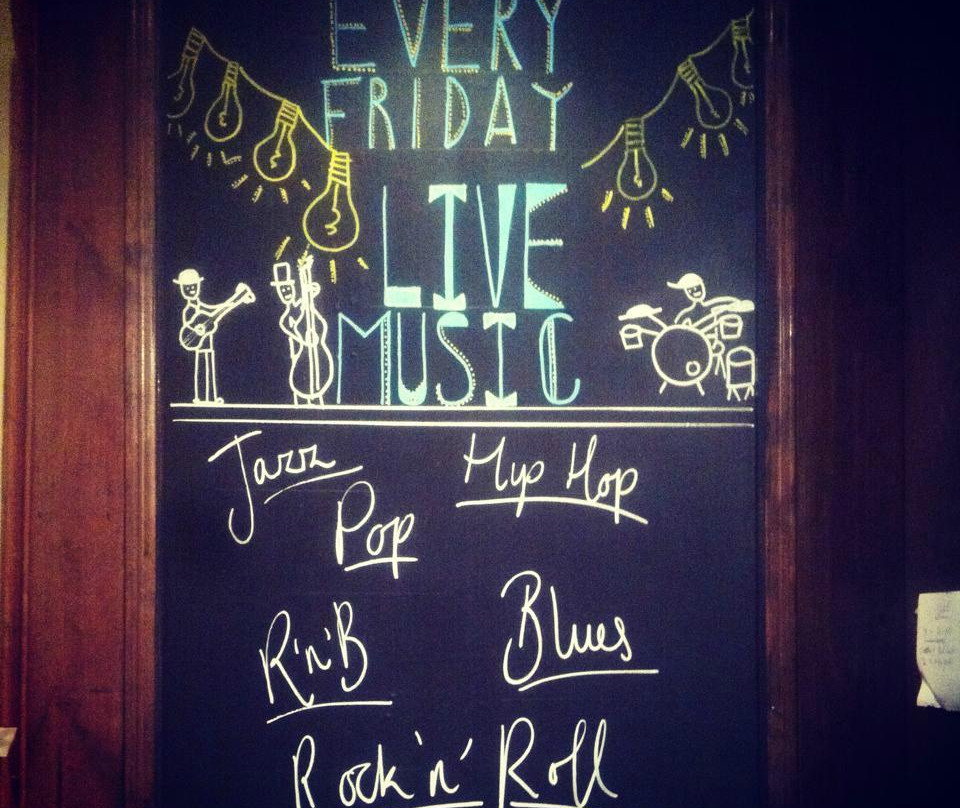 EVERY
FRIDAY
LIVE
MUSIC
Jazz
Hip Hop
Pop
Blues
R'n'B
Rock 'n' Roll